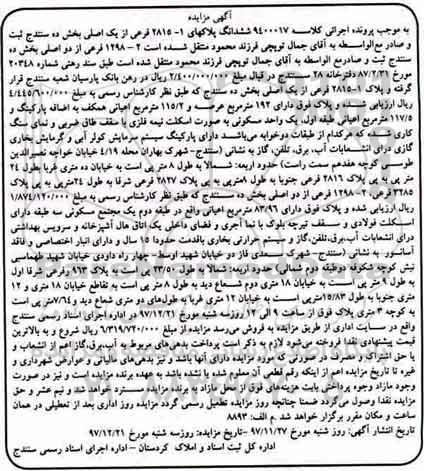 آگهی مزایده
به موجب پرونده اجرائی کلاسه ۹۴۰۰۰۱۷ ششدانگ پلاکهای ۱- ۲۸۱۵ فرعی از یک اصلی بخش ده سنندج ثبت
و صادر مع‌الواسطه به آقای جمال توپچی فرزند محمود منتقل شده است ۲- ۱۲۹۸ فرعی از دو اصلی بخش ده
سنندج ثبت و صادرمع الواسطه به آقای جمال توپچی فرزند محمود منتقل شده است طبق سند رهنی شماره ۲۰۳۴۸
مورخ ۸۷/۱۱/ دفترخانه ۲۸ سنندج در قبال مبلغ ۲/۴۰۰/۰۰۰/۰۰۰ ریال در رهن بانک پارسیان شعبه سنندج قرار
گرفته و پلاک ۱-۲۸۱۵ فرعی از یک اصلی بخش ده سنندج که طبق نظر کارشناس رسمی به مبلغ ۴/۴۴۵/۶۰۰/۰۰۰
ریال ارزیابی شده و پلاک فوق دارای ۱۹۲ مترمربع عرصه و ۱۱۵/۲ مترمربع اعیانی همکف به اضافه پارکینگ و
۱۱۷/۵ مترمربع اعیانی طبقه اول، یک واحد مسکونی به صورت اسکلت نیمه فلزی، سقف طاق ضربی و نمای سنگ
کاری شده که هرکدام از طبقات دوخوابه می‌باشد دارای پارکینگ سیستم سرمایش کولر آبی و گرمایش بخاری
گازی دارای انشعابات آب، برق، تلفن، گاز به نشانی (سنندج- شهرک بهاران محله ۴/۱۹ خیابان خواجه نصیرالدین
طوسی کوچه هفدهم سمت راست) حدود اربعه: شمالا به طول ۸ متر پی است به خیابان ده متری غربا بطول ۲۴
متر پی به پی پلاک ۲۸۱۶ فرعی جنوبا به طول ۸مترپی به پی پلاک ۲۸۲۷ فرعی شرقا به طول ۲۴مترپی به پی پلاک
۳۲۸۵ فرعی ۲- ۱۲۹۸ فرعی از دو اصلی بخش ده سنندج که طبق نظر کارشناس رسمی به مبلغ ۱/۸۷۴/۱۲۰/۰۰۰
ریال ارزیابی شده و پلاک فوق دارای ۸۳/۹۶ مترمربع اعیانی واقع در طبقه دوم یک مجتمع مسکونی سه طبقه دارای
اسکلت فولادی و سقف تیرچه بلوک با نما آجری و فضای داخلی یک اتاق هال آشپزخانه و سرویس بهداشتی
دارای انشعابات آب،برق،تلفن،گاز و سیستم حرارتی بخاری باقدمت حدودا ۱۵ سال و دارای انبار اختصاصی و فاقد
آسانسور به نشانی (سنندج- شهرک سعدی فاز دو خیابان شهید اوسط بهار راه دادودی خیابان شهید طهماسبی
نیش کوچه شکوفه دوطبقه دو شمالی) حدود اربعه: شمالا به طول ۲۳/۵۰ متر پی است به پی پلاک ۹۶۳ فرعی شرقا اول
به طول ۸ متر پی است به خیابان ۱۸ متری دوم شعاع دید به طول ۸ متر پی است به تقاطع خیابان ۱۸ متری و ۱۲
متری جنوبا به طول ۱۵/۸۳متر پی است به خیابان ۱۲ متری غربا به طول‌های دو متری شعاع دید و ۷/۶۴متر پی است
به کوچه ۳ متری پلاک فوق از ساعت ۹ الی ۱۲ روزسه شنبه مورخ ۹۷/۱۲/۲۱ در اداره اجرای اسناد رسمی سنندج
واقع در سایت اداری از طریق مزایده به فروش می‌رسد مزایده از مبلغ ۶/۳۱۹/۷۲۰/۰۰۰ ریال شروع و به بالاترین
قیمت پیشنهادی نقدا فروخته می‌شود لازم به ذکر است پرداخت بدهی‌های مربوط به آب،برق،گاز اعم از انشعاب و
یا حق اشتراک و مصرف در صورتی که مورد مزایده دارای آنها باشد و نیز بدهی‌های مالیاتی و عوارض شهرداری و
غیره تا تاریخ مزایده اعم از اینکه رقم قطعی آن معلوم شده یا نشده باشد به عهده برنده مزایده است و نیز در صورت
وجود مازاد وجوه پرداختی بابت هزینه‌های فوق از محل مازاد به برنده مزایده مسترد خواهد شد و نیم عشر و حق
مزایده نقدا وصول می گردد ضمنا چنانچه روز مزایده تعطیل رسمی گردد مزایده روز اداری بعد از تعطیلی در همان
ساعت و مکان مقرر برگزار خواهد شد .م الف: ۸۸۹۳
تاریخ انتشار آگهی: روز شنبه مورخ ۹۷/۱۱/۲۷ -تاریخ مزایده: روزسه شنبه مورخ ۹۷/۱۲/۲۱
اداره کل ثبت اسناد و املاک کردستان – اداره اجرای اسناد رسمی سنندج